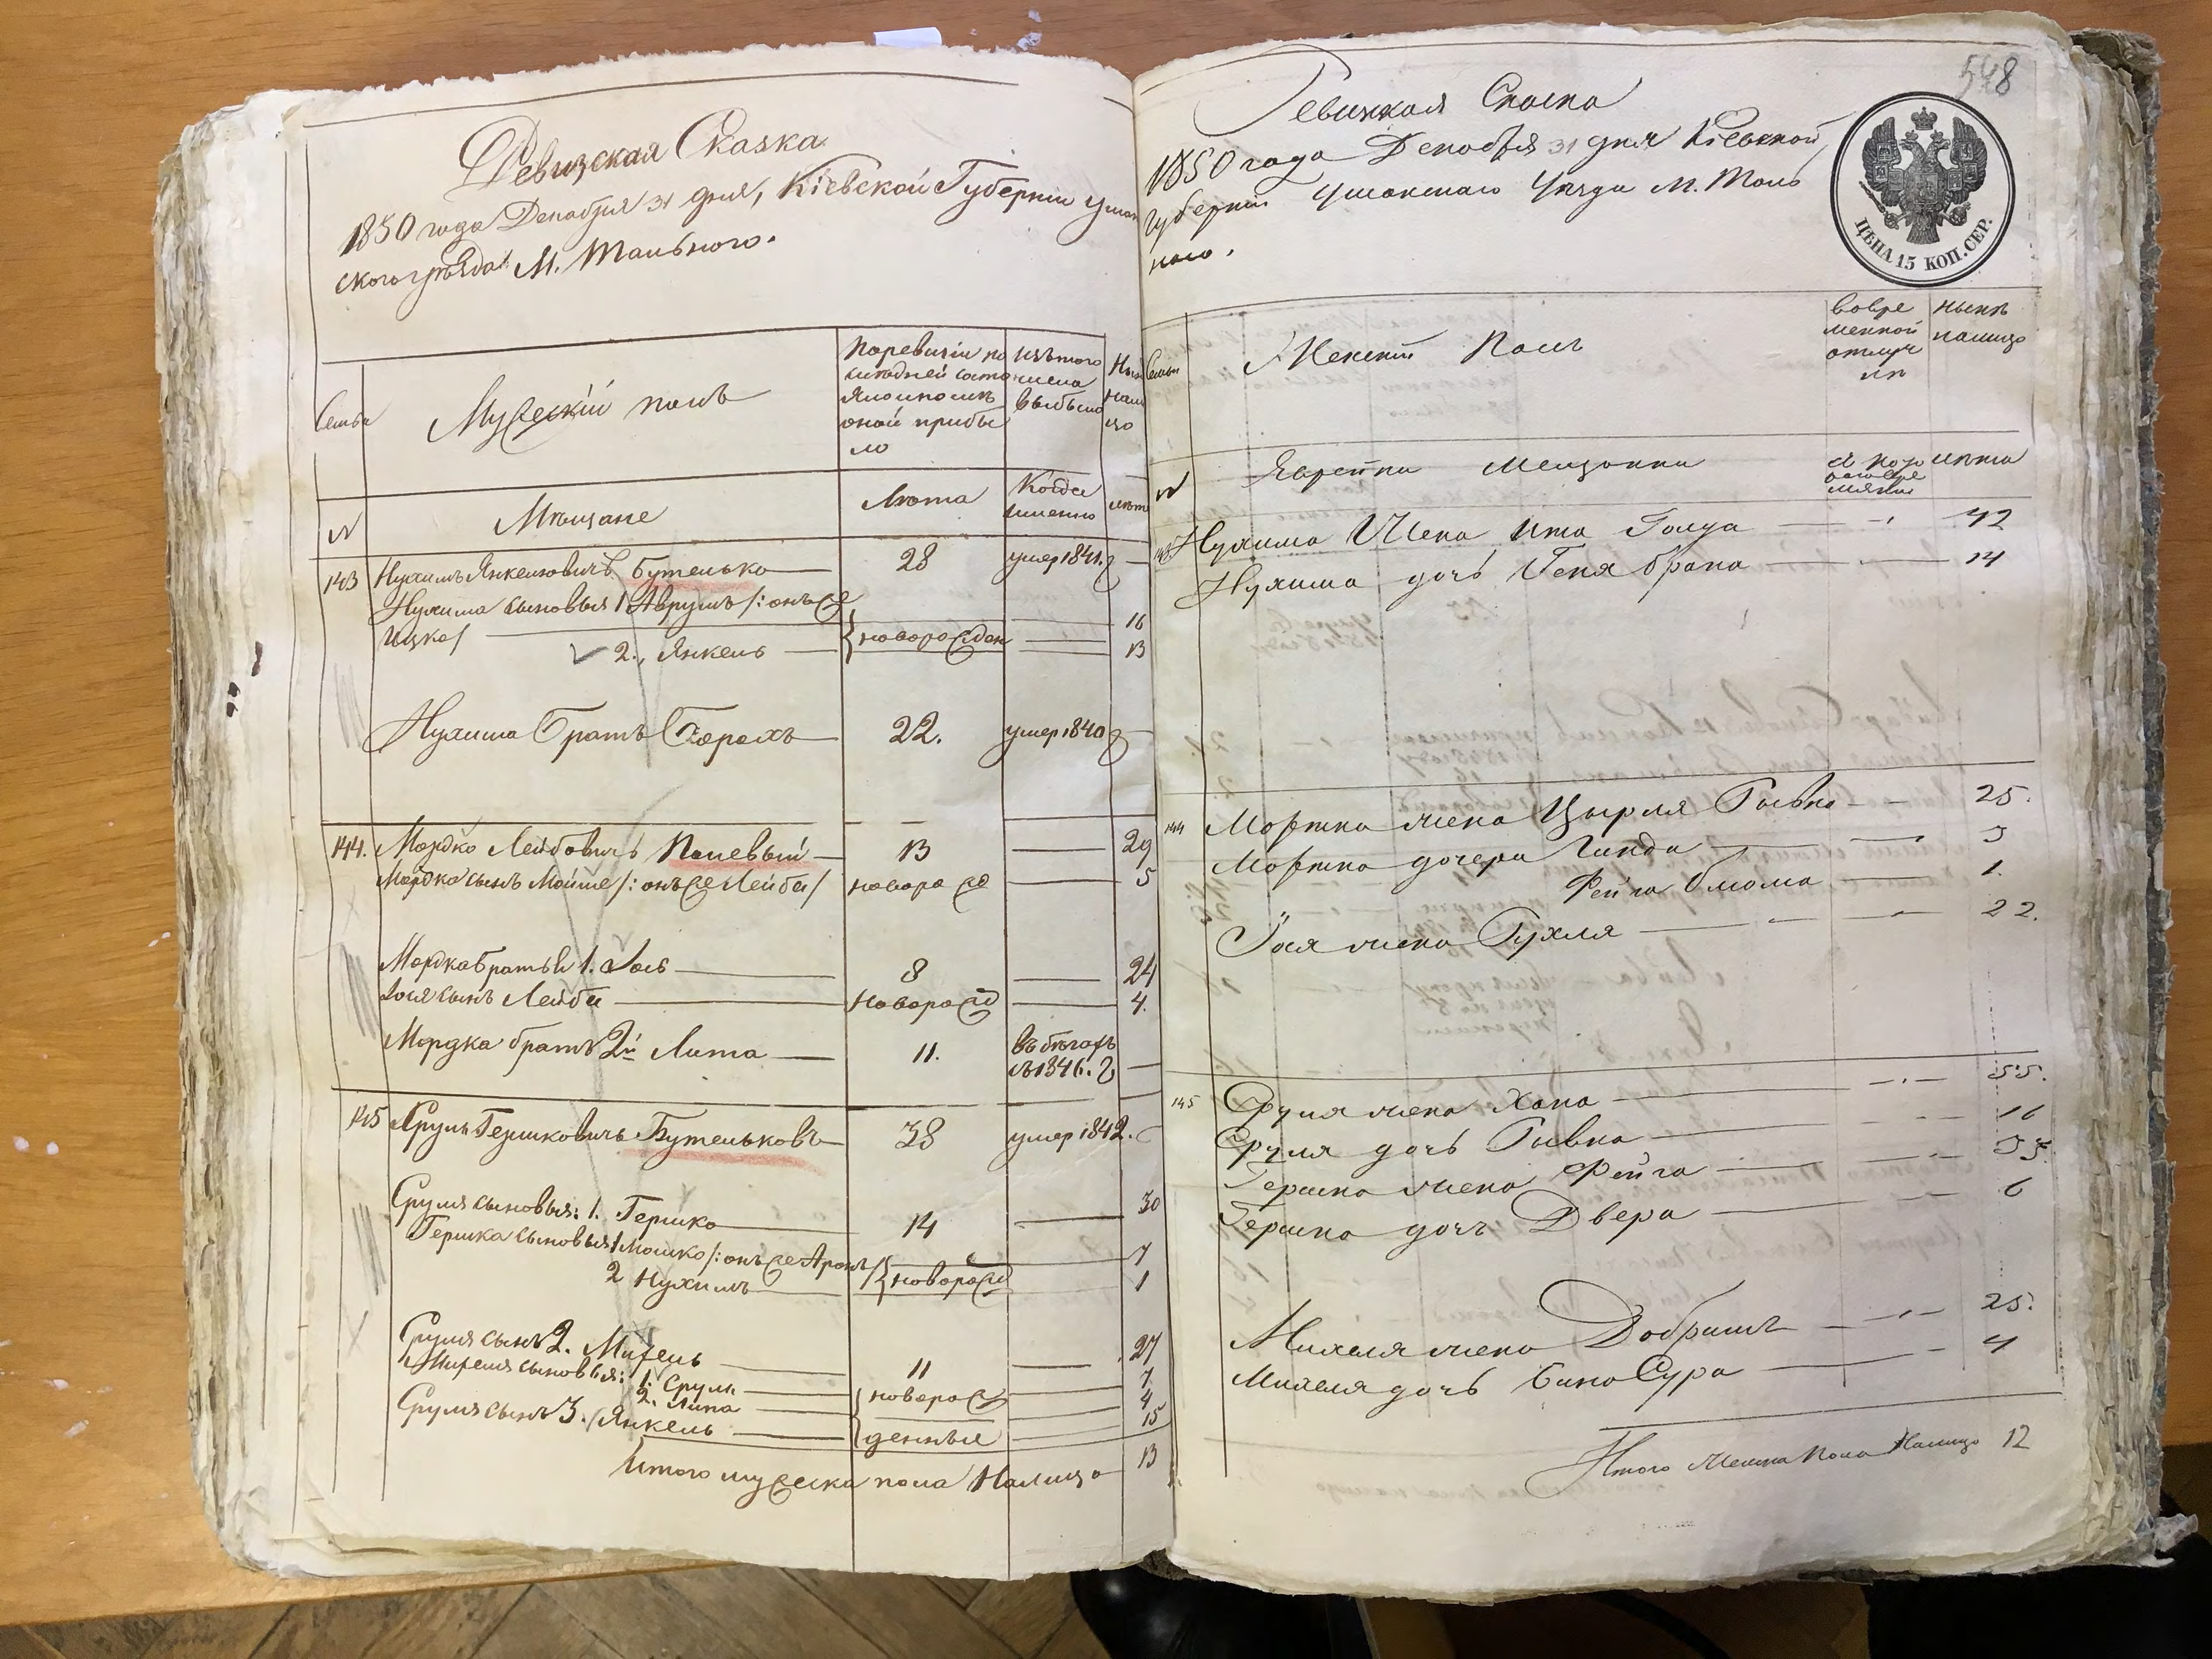 Ревизская Сказка
1850 года Декабря 31 дня, Кіевской Губерніи Уман
ского уѣзда М. Тального.
Семьи
Мужескій полъ
По ревизіи по
следней состо
яло и послѣ
оной прибы
ло
изъ того
числа
выбыло
Нын
нали
цо
N
Мѣщане
Лѣта
Когда
именно
лѣт
143 Нухимъ Янкелиовичъ Бутенько 28 умер 1841.
Нухима сыновья 1 Аврумъ /: онъ же
Ицко/ 16
2., Янкель новорожден 13
Нухима Братъ Борохъ 22. умер 1840
144. Мордко Лейбовичъ Полевый 13 29
Мордка сынъ Мойше /: онъ же Лейба / новорож 5
Мордка братья 1. Іось 8 24
Іося сынъ Лейба новорожд 4.
Мордка братъ 2й Липа 11. въ бѣгахъ
съ 1846. г
145 Сруль Гершковичъ Бутеньковъ 38 умер 1842.
Сруля сыновья: 1. Гершко 14 30
Гершка сыновья 1 Мошко /: онъ же Аронъ/ 7
2 Нухимъ новорожд 1
Сруля сынъ 2. Михель 11 27
Михеля сыновья: 1. Сруль 7
2. Липа новорож 4
Сруля сынъ 3. Янкель денные 15
Итого мужеска пола Налицо 13
548
Ревизкая Скаска
1850 года Декабря 31 дня Кіевской
Губерніи Уманскаго Уѣзда М. Таль
наго.
ЦѢНА 15 КОП. СЕР.
Семьи
Женскій Полъ
во вре
менной
отлуч
кѣ
нынѣ
налицо
N
Еврейки Мещанки
лѣта
143 Нухима Жена Ита Голда 42
Нухима дочь Геня Брана 14
144 Мортка жена Цырля Рывка 25.
Мортка дочери Гинда 3
Фейга Блюма 1.
Іося жена Рухля 22.
145 Сруля жена Хана 55.
Сруля дочь Рывка 16
Гершка жена Фейга 33.
Гершка дочь Двера 6
Михеля жена Добришъ 25.
Михеля дочь Бина Сура 4
Итого Женска Пола Налицо 12